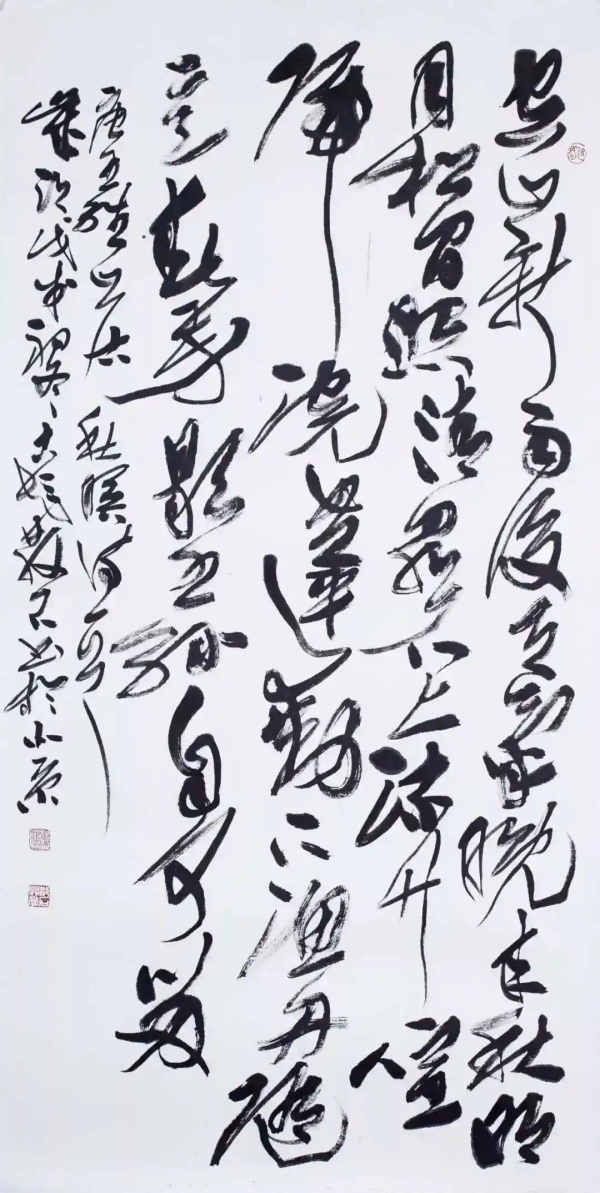 空山新雨後天氣晚來秋明
月松間照清泉石上流竹喧
歸浣女蓮動下漁舟隨
意春芳歇王孫自可留
唐王維山居秋暝詩一首
歲次戊戌初冬書於北京